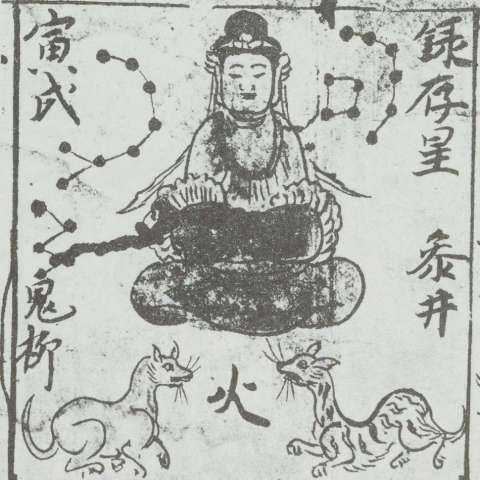 録存星
参井
火
寅戌
鬼柳